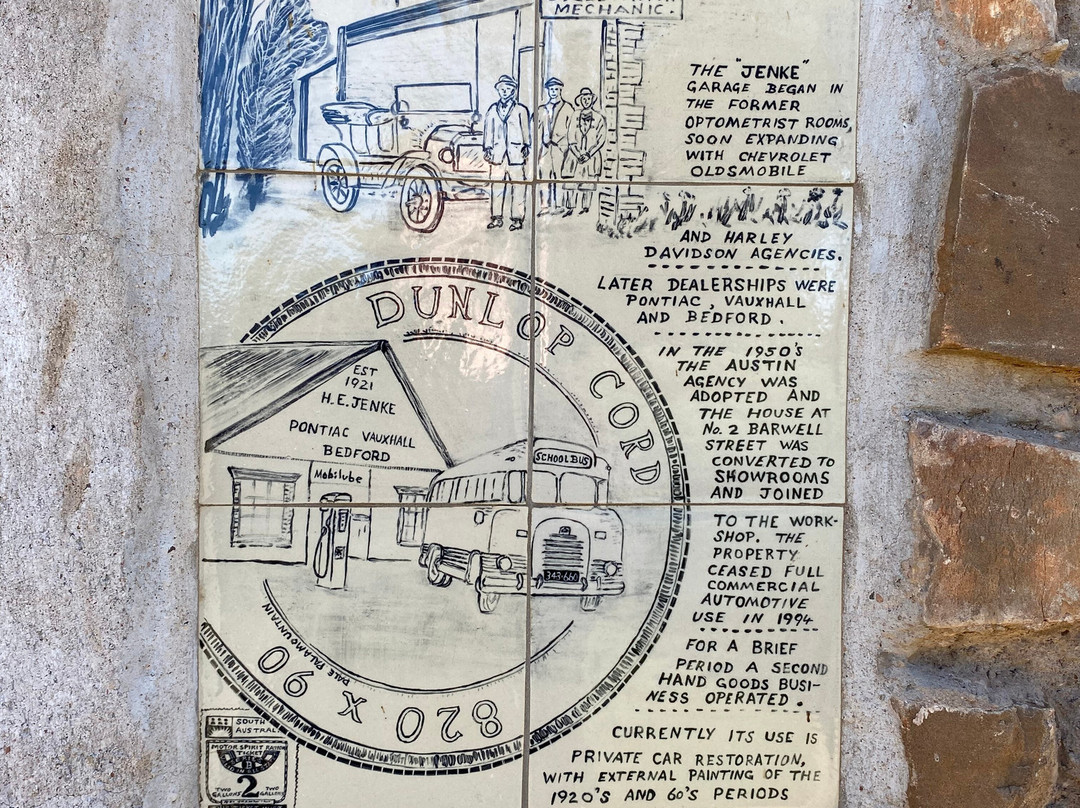 MECHANIC.
THE "JENKE"
GARAGE BEGAN IN
THE FORMER
OPTOMETRIST ROOMS,
SOON EXPANDING
WITH CHEVROLET
OLDSMOBILE
AND HARLEY
DAVIDSON AGENCIES.
LATER DEALERSHIPS WERE
PONTIAC, VAUXHALL
AND BEDFORD.
IN THE 1950'S
THE AUSTIN
AGENCY WAS
ADOPTED AND
THE HOUSE AT
No. 2 BARWELL
STREET WAS
CONVERTED TO
SHOWROOMS
AND JOINED
TO THE WORK-
SHOP. THE
PROPERTY
CEASED FULL
COMMERCIAL
AUTOMOTIVE
USE IN 1994
FOR A BRIEF
PERIOD A SECOND
HAND GOODS BUSI-
NESS OPERATED.
CURRENTLY ITS USE IS
PRIVATE CAR RESTORATION,
WITH EXTERNAL PAINTING OF THE
1920'S AND 60'S PERIODS
DUNLOP CORD
EST
1921
H.E. JENKE
PONTIAC VAUXHALL
BEDFORD
Mobilube
SCHOOL BUS
343-660
820 X 90
DALE PALAMOUNTAIN
SOUTH
AUSTRALIA
MOTOR SPIRIT RATION
TICKET
2
TWO
GALLONS
TWO
GALLONS